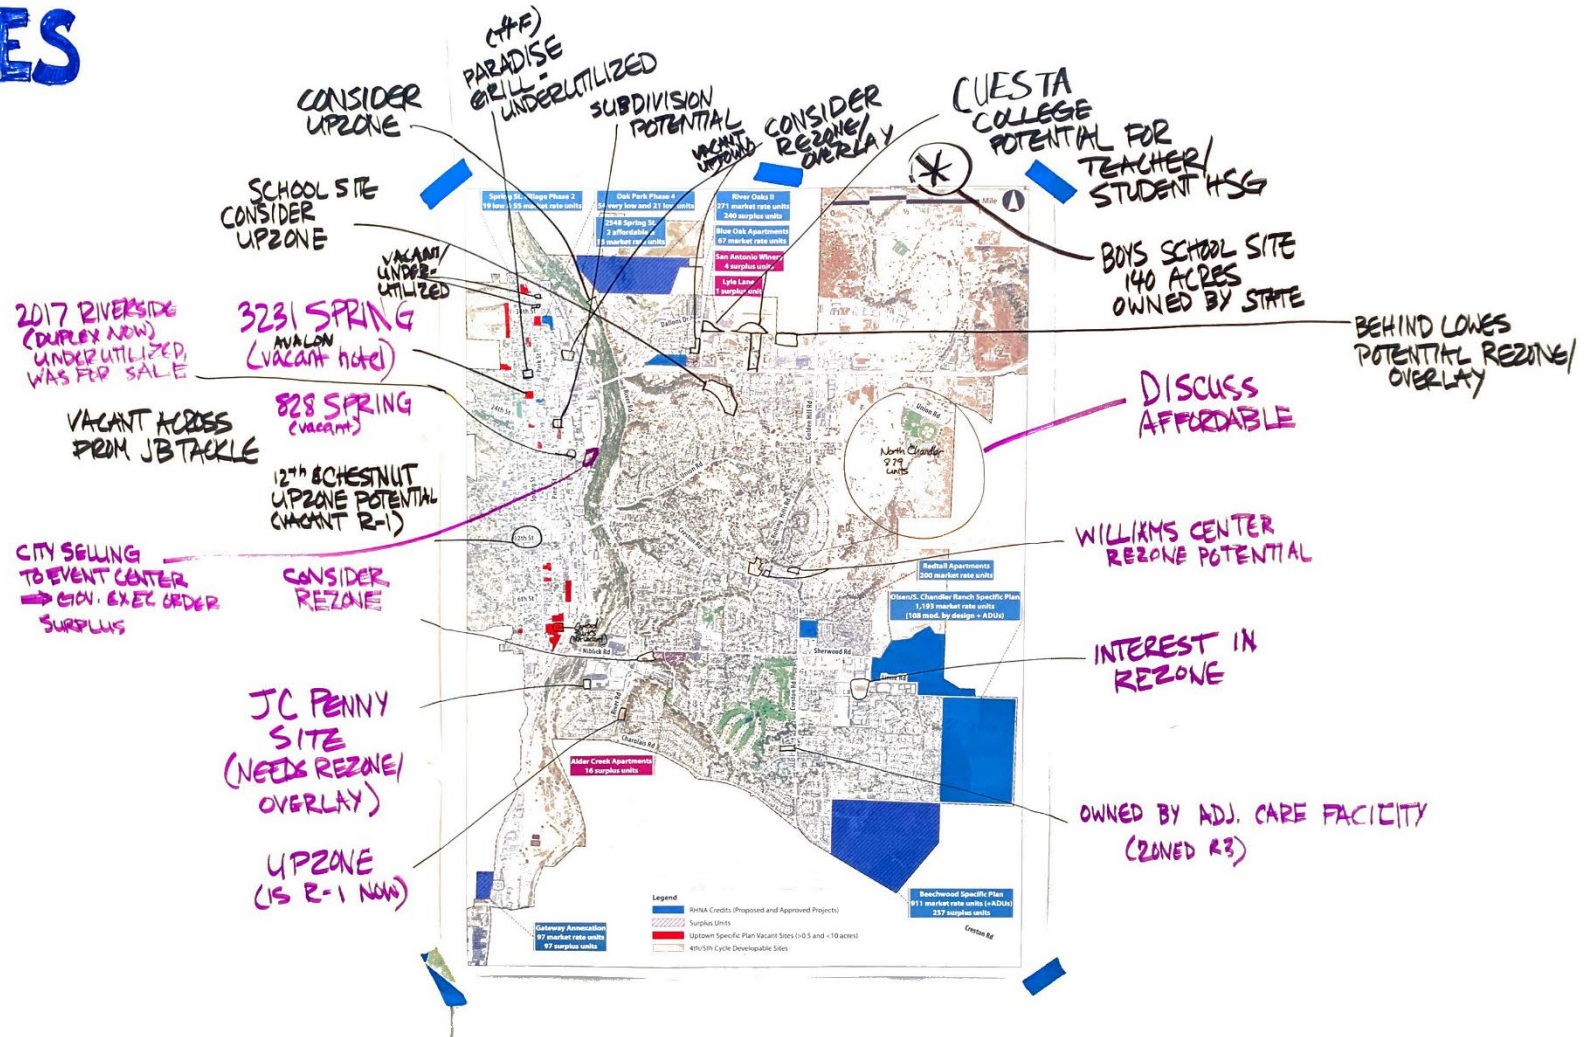 ES
(FF)
PARADISE
GRILL -
UNDERUTILIZED
CONSIDER
UPZONE
SUBDIVISION
POTENTIAL
VACANT
UPTOWN
CONSIDER
REZONE/
OVERLAY
CUESTA
COLLEGE
POTENTIAL FOR
TEACHER/
STUDENT HSG
SCHOOL SITE
CONSIDER
UPZONE
VACANT/
UNDER-
UTILIZED
BOYS SCHOOL SITE
140 ACRES
OWNED BY STATE
2017 RIVERSIDE
(DUPLEX NOW)
UNDERUTILIZED,
WAS FOR SALE
3231 SPRING
AVALON
(vacant hotel)
828 SPRING
(vacant)
BEHIND LOWES
POTENTIAL REZONE/
OVERLAY
VACANT ACROSS
FROM JB TACKLE
DISCUSS
AFFORDABLE
12th & CHESTNUT
UPZONE POTENTIAL
(VACANT R-1)
CITY SELLING
TO EVENT CENTER
→ GOV. EXEC ORDER
SURPLUS
CONSIDER
REZONE
WILLIAMS CENTER
REZONE POTENTIAL
INTEREST IN
REZONE
JC PENNY
SITE
(NEEDS REZONE/
OVERLAY)
UPZONE
(IS R-1 NOW)
OWNED BY ADJ. CARE FACILITY
(ZONED R3)
Phase 2
55 market rate units
Oak Park Phase 4
very low and 21 low units
2548 Spring St.
2 affordable
market rate units
River Oaks II
271 market rate units
240 surplus units
Blue Oak Apartments
67 market rate units
San Antonio Winery
4 surplus units
Lyle Lane
1 surplus unit
Mile
Dallons Dr
24th St
River Rd
Golden Hill Rd
Union Rd
North Chandler
829
units
Union Rd
Spring St
Pine St
12th St
Creston Rd
6th St
Niblick Rd
River Rd
Sherwood Rd
Creston Rd
Charolais Rd
Redtail Apartments
200 market rate units
Olsen/S. Chandler Ranch Specific Plan
1,193 market rate units
(108 mod. by design + ADUs)
Alder Creek Apartments
16 surplus units
Beechwood Specific Plan
911 market rate units (+ADUs)
237 surplus units
Creston Rd
Gateway Annexation
97 market rate units
97 surplus units
Legend
RHNA Credits (Proposed and Approved Projects)
Surplus Units
Uptown Specific Plan Vacant Sites (>0.5 and <10 acres)
4th/5th Cycle Developable Sites